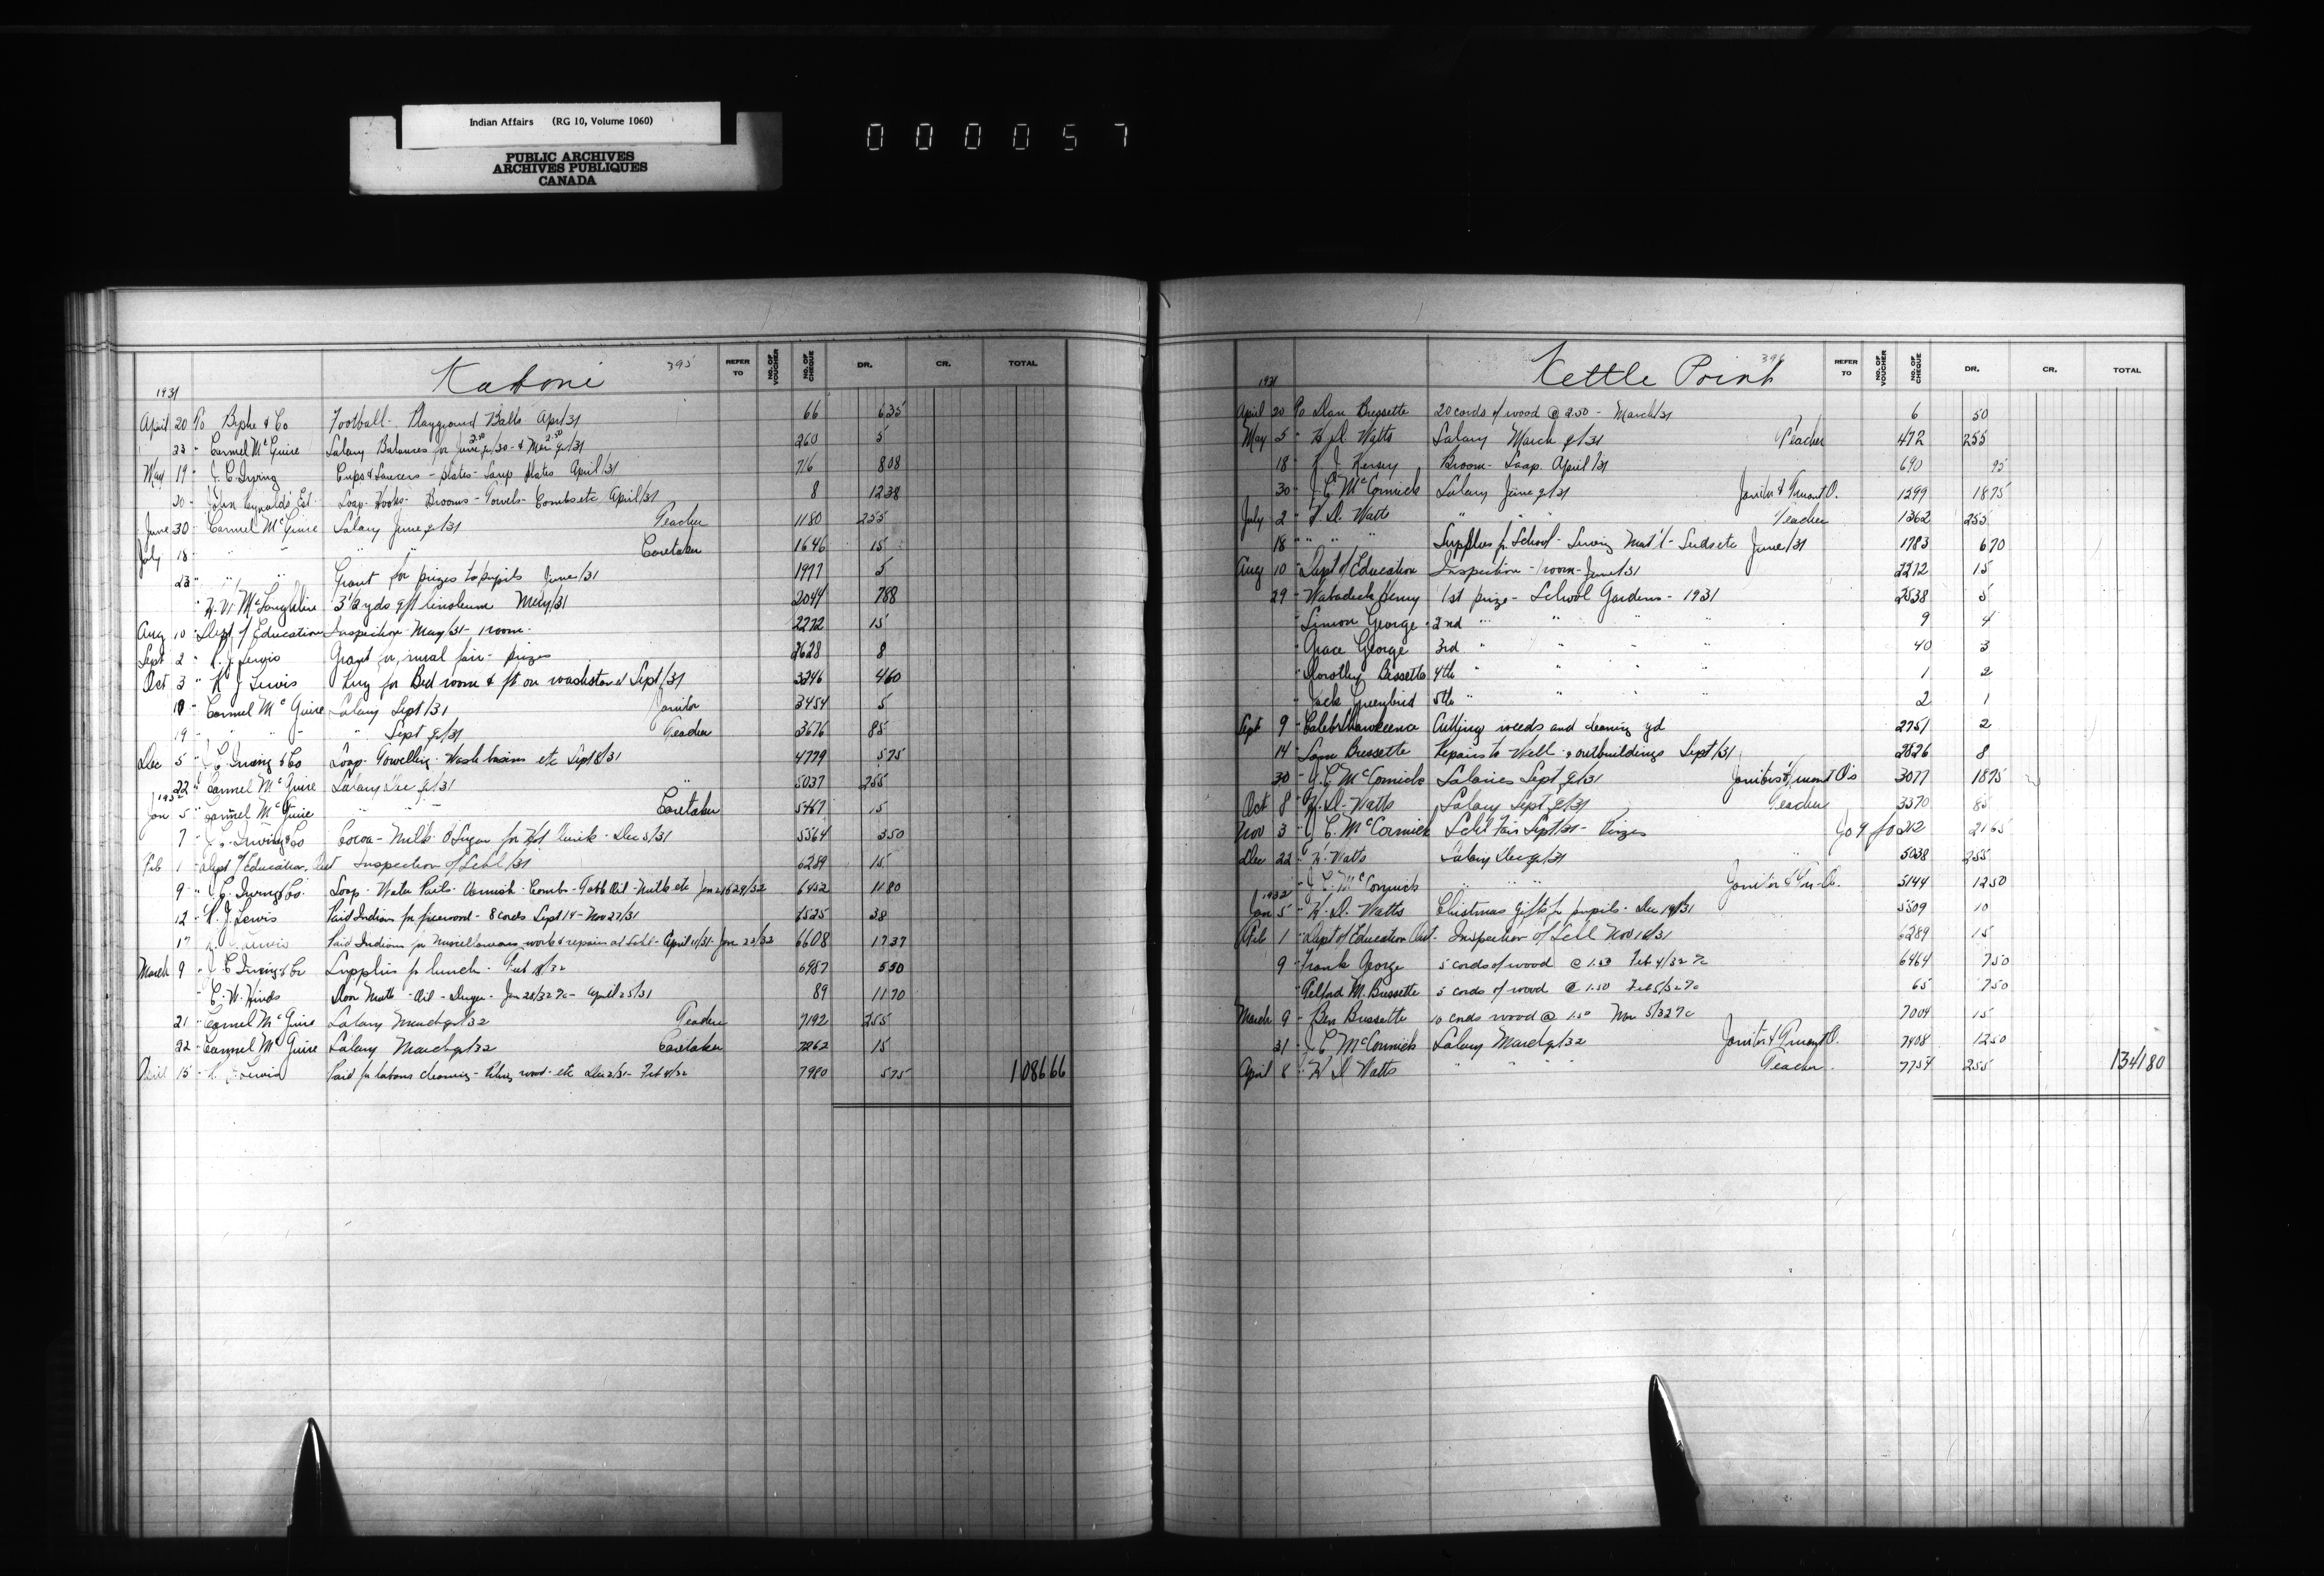 Indian Affairs (RG 10, Volume 1060)
PUBLIC ARCHIVES
ARCHIVES PUBLIQUES
CANADA
000057
Kaboni 395
REFER TO NO. OF VOUCHER NO. OF CHEQUE DR. CR. TOTAL
1931
April 20 To & Co Football - Playground Balls Apr/31 66 6 35
23 " Carmel McGuire Salary Balances for June qr/30 2.50 & Mar qr/31 2.50 260 5
May 19 " J. C. Irving Cups & Saucers - plates - Soup plates April/31 716 8 08
20 " John Reynolds Est Soap - Hooks - Brooms - Towels - Combs etc April/31 8 12 38
June 30 " Carmel McGuire Salary June qr/31 Teacher 1180 255
July 18 " " " " " Caretaker 1646 15
23 " " " Grant for prizes to pupils June/31 1977 5
" McLoughline 3 1/2 yds 9ft linoleum May/31 2044 7 88
Aug 10 " Dept of Education Inspection - May/31 - 1 room - 2272 15
Sept 2 " R. J. Lewis Grant for rural fair - prizes 2628 8
Oct 3 " R J Lewis Rug for Bed room & for washstand Sept/31 3246 4 60
10 " Carmel McGuire Salary Sept/31 Janitor 3454 5
19 " " " " Sept qr/31 Teacher 3676 85
Dec 5 " J C Irving & Co Soap - Towelling - Wash basins etc Sept 8/31 4779 5 75
22 " Carmel McGuire Salary Dec qr/31 " 5037 255
1932
Jan 5 " Carmel McGuire " " Caretaker 5467 15
7 " J. C. Irving & Co Cocoa - Milk & Sugar for Hot lunch - Dec 5/31 5564 3 50
Feb 1 " Dept of Education, Inspection of Schl/31 6289 15
9 " J. C. Irving & Co. Soap - Water Pails - Varnish - Combs - Oil - etc Jan 29/32 6452 11 80
12 " R. J. Lewis Paid Indians for firewood - 8 cords Sept 14 - Nov 27/31 6525 38
17 " R. J. Lewis Paid Indians for Miscellaneous work & repairs at Schl - April 11/31 - Jan 22/32 6608 17 37
March 9 " J C Irving & Co Supplies for lunch - Feb 18/32 6957 5 50
" C. W. Hinds Door Matts - Oil - Jan 28/32 - April 25/31 89 11 70
21 " Carmel McGuire Salary March qr/32 Teacher 7192 255
22 " Carmel McGuire Salary March qr/32 Caretaker 7262 15
April 15 " R. J. Lewis Paid for labour cleaning - wood - etc Dec 2/31 - Feb 4/32 7980 5 75 1086 66
Kettle Point 396
REFER TO NO. OF VOUCHER NO. OF CHEQUE DR. CR. TOTAL
1931
April 20 To Dan Bressette 20 cords of wood @ 2.50 - March/31 6 50
May 5 " H. D. Watts Salary March qr/31 Teacher 472 255
18 " R. J. Kersey Broom - Soap April/31 690 95
30 " J. C. McCormick Salary June qr/31 Janitor & Truant O. 1299 18 75
July 2 " H. D. Watts " " " Teacher 1362 255
18 " " " " Supplies for School - Sewing Mat'l - Seeds etc June/31 1783 6 70
Aug 10 " Dept of Education Inspection - 1 room - June/31 2272 15
29 " Wabadeek Henry 1st prize - School Gardens - 1931 2538 5
" Simon George 2nd " " " " 9 4
" Grace George 3rd " " " " 40 3
" Dorothy Bressette 4th " " " " 1 2
" Jack Greenbird 5th " " " " 2 1
Sept 9 " Caleb Shawkence Cutting weeds and cleaning yd 2751 2
14 " Sam Bressette Repairs to Well & outbuildings Sept/31 2826 8
30 " J. C. McCormick Salaries Sept qr/31 Janitor & Truant O's 3077 18 75
Oct 8 " H. D. Watts Salary Sept qr/31 Teacher 3370 85
Nov 3 " J. C. McCormick Schl Fair Sept/31 - Prizes 212 21 65
Dec 22 " H. Watts Salary Dec qr/31 " 5038 255
" J. C. McCormick " " " Janitor & Tru-O. 5144 12 50
1932
Jan 5 " H. D. Watts Christmas Gifts for pupils - Dec 19/31 5509 10
Feb 1 " Dept of Education Ont. Inspection of Schl Nov 18/31 6289 15
9 " Frank George 5 cords of wood @ 1.50 Feb 4/32 6464 7 50
" Telford M. Bressette 5 cords of wood @ 1.50 Feb 5/32 65 7 50
March 9 " Ben Bressette 10 cords wood @ 1.50 Mar 5/32 7004 15
31 " J C McCormick Salary March qr/32 Janitor & Truant O. 7408 12 50
April 8 " H D Watts " " " Teacher 7754 255 1341 80